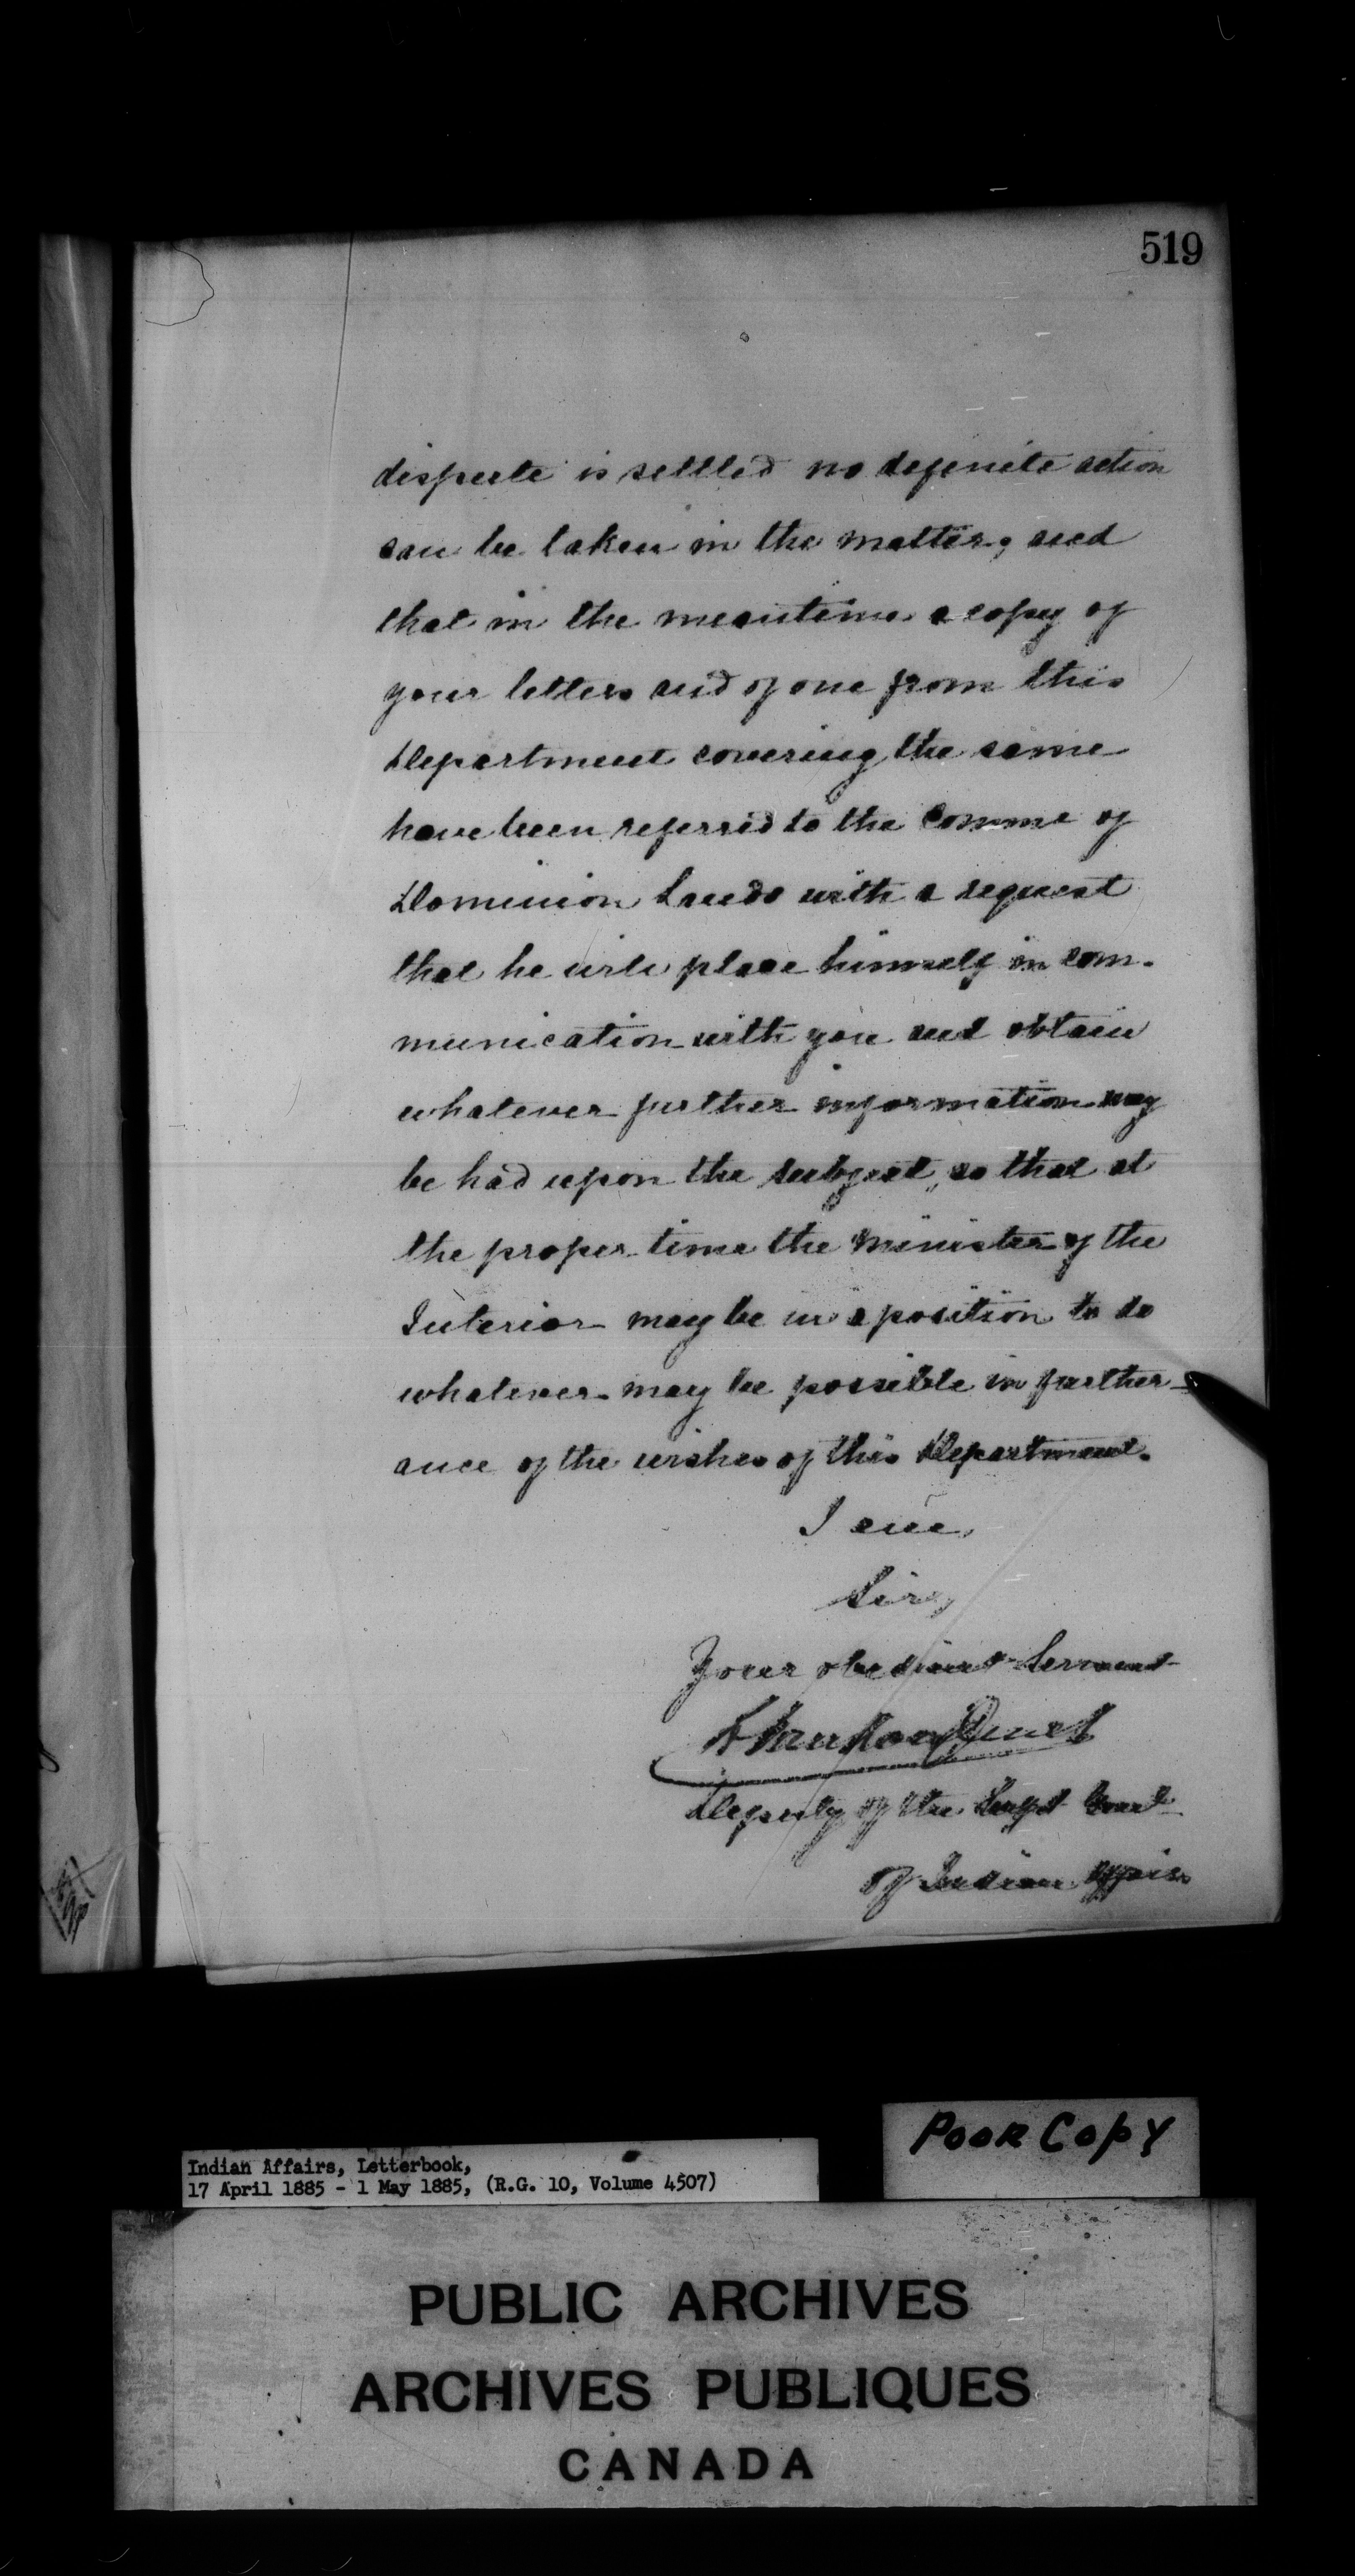 519
dispute is settled no definite action
can be taken in the matter, and
that in the meantime a copy of
your letters and of one from this
Department covering the same
have been referred to the Comme of
Dominion Lands with a request
that he will place himself in com-
munication with you and obtain
whatever further information may
be had upon the subject, so that at
the proper time the Minister of the
Interior may be in a position to do
whatever may be possible in further-
ance of the wishes of this Department.
I am,
Sir,
Your obedient Servant
L. Vankoughnet
Deputy of the Supt Genl
of Indian Affairs
Poor Copy
Indian Affairs, Letterbook,
17 April 1885 - 1 May 1885, (R.G. 10, Volume 4507)
PUBLIC ARCHIVES
ARCHIVES PUBLIQUES
CANADA